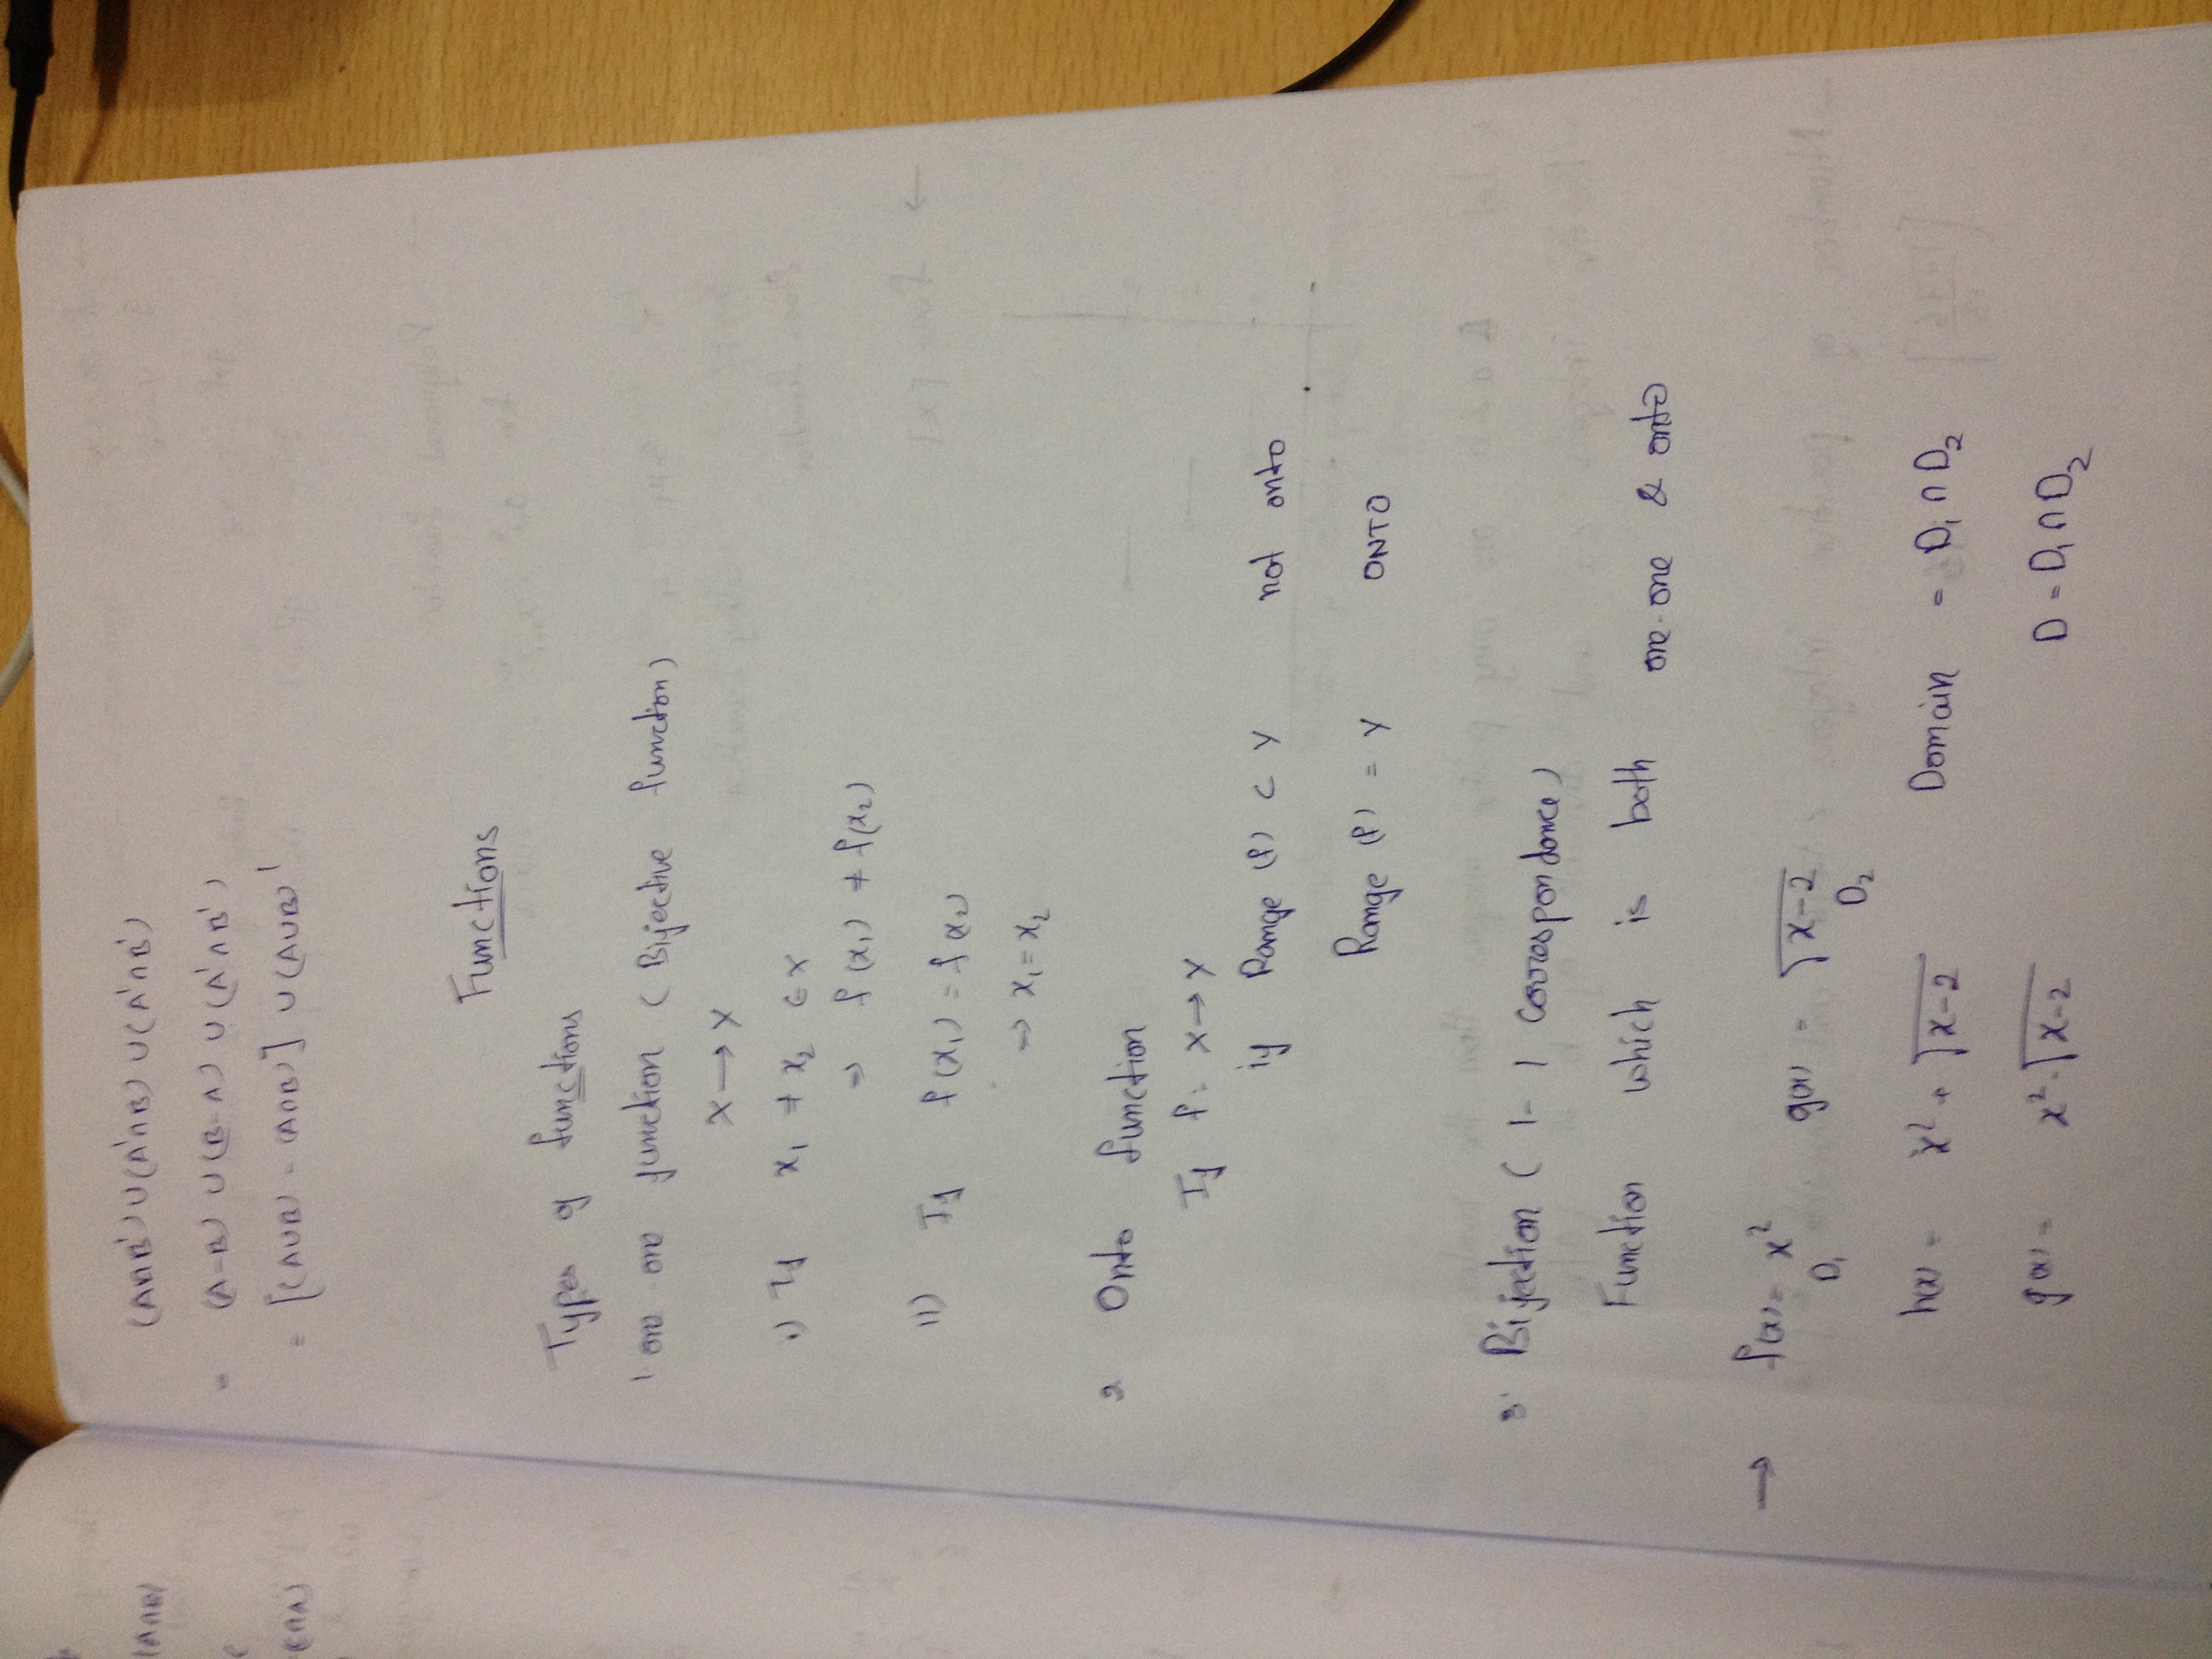 (A∩B') ∪ (A'∩B) ∪ (A'∩B')
= (A-B) ∪ (B-A) ∪ (A'∩B')
= [(A∪B) - (A∩B)] ∪ (A∪B)'
Functions
Types of functions
1 one one function (Bijective function)
X → X
i) If x₁ ≠ x₂ ∈ X
⇒ f(x₁) ≠ f(x₂)
ii) If f(x₁) = f(x₂)
⇒ x₁ = x₂
2 Onto function
If f: X → Y
if Range (f) ⊂ Y not onto
Range (f) = Y ONTO
3. Bijection (1-1 Correspondance)
Function which is both one-one & onto
→ f(x) = x² g(x) = √x-2
D₁ D₂
h(x) = x² + √x-2 Domain = D₁ ∩ D₂
g(x) = x² - √x-2 D = D₁ ∩ D₂